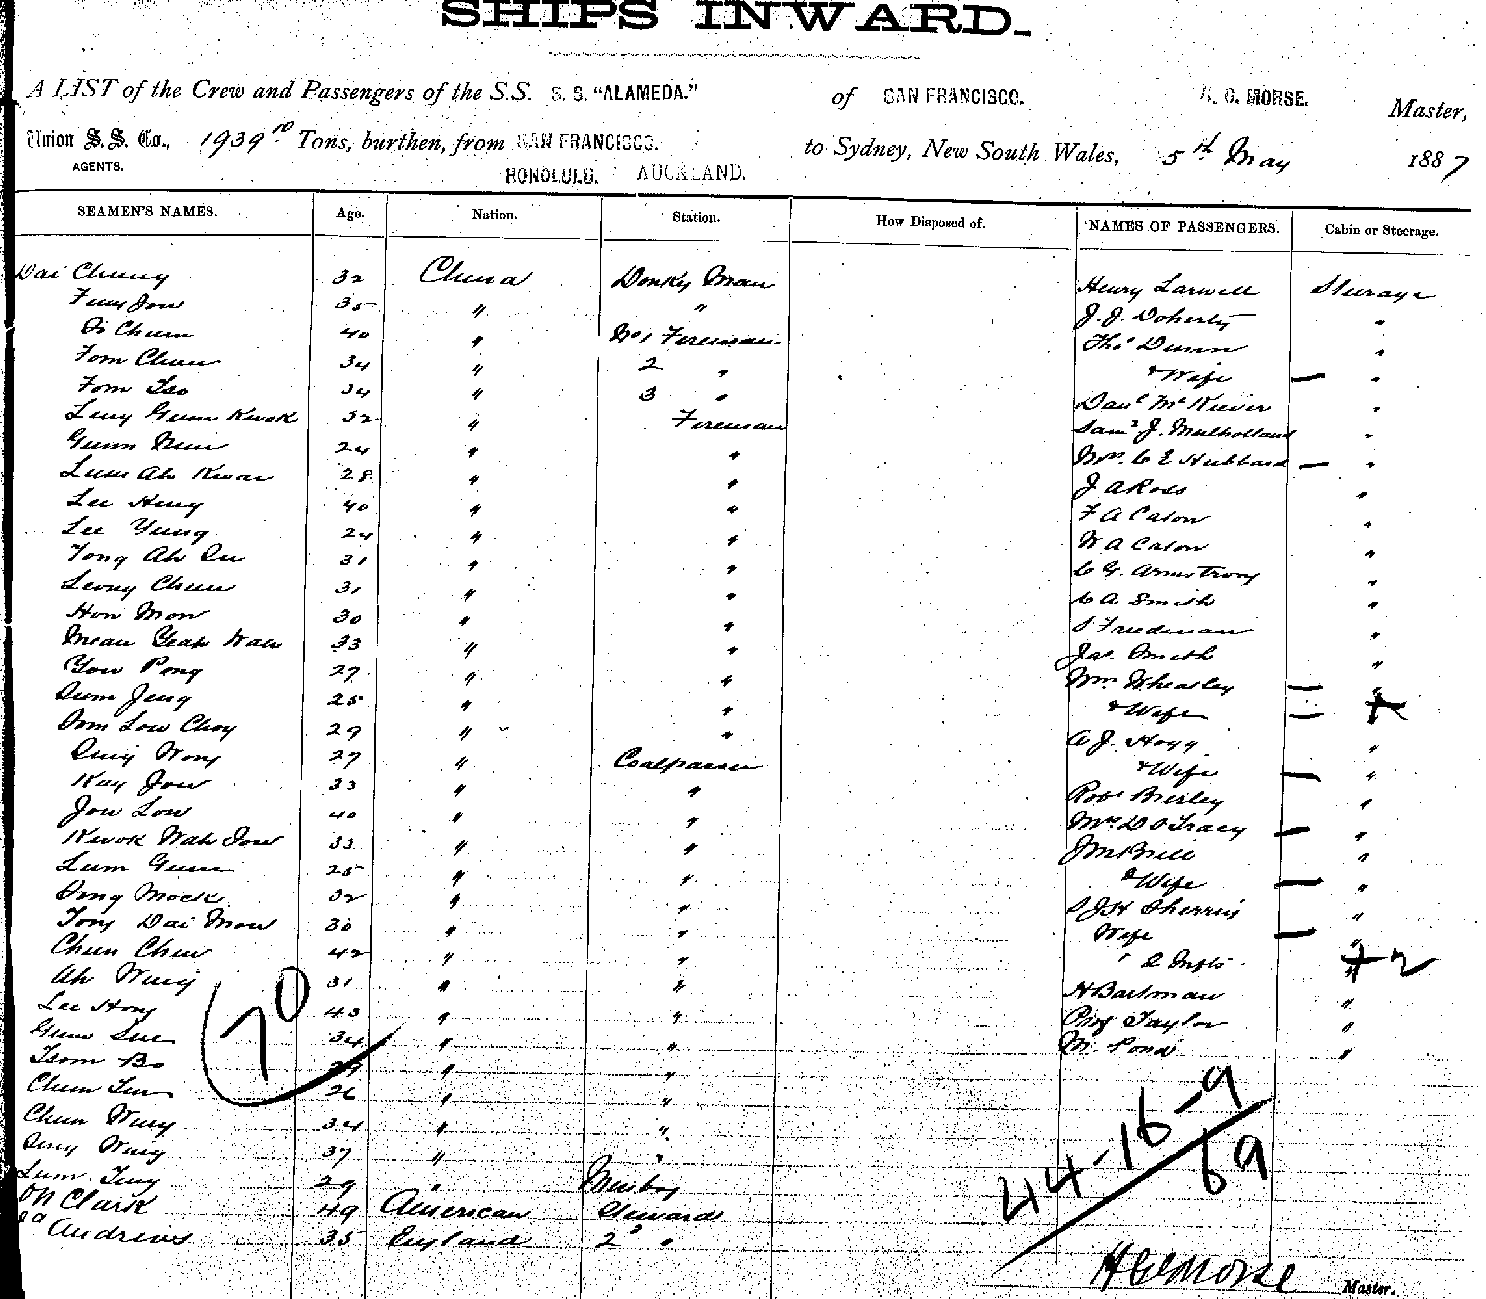 SHIPS INWARD.
A LIST of the Crew and Passengers of the S.S. S. S. "ALAMEDA." of SAN FRANCISCO. H. G. MORSE. Master,
Union S.S. Co., 1939 Tons, burthen, from SAN FRANCISCO. to Sydney, New South Wales, 5th May 1887
AGENTS. HONOLULU. AUCKLAND.
SEAMEN'S NAMES. Age. Nation. Station. How Disposed of. NAMES OF PASSENGERS. Cabin or Steerage.
Dai Chung 32 China Donky Man Henry Larwell Sturage
Jow 35 " " J. J. Doherty "
Chum 40 " No 1 Fireman Thos Dunn "
Tom Chun 34 " 2 " & Wife "
Tom Tso 34 " 3 " Danl McKiever "
Leng Gunn Kwok 32 " Fireman Saml J. Mulholland "
Gunn 24 " " Mrs C E Hubbard "
Lum Ah Kwan 28 " " J A Ross "
Lee Hung 40 " " F A Caton "
Lee Yung 24 " " W A Caton "
Tong Ah 31 " " C G. Armstrong "
Leong Chun 31 " " C A Smith "
Hon Mon 30 " " S Friedman "
Mean Yeah Wah 33 " " Jas. Smith "
Yow Pong 27 " " Wm Wheatley "
Sum Jung 25 " " & Wife
Low Choy 29 " " A J. Hogg "
Wong 27 " Coalpasser & Wife "
Kay Jow 33 " " Robt Brierley "
Jow Low 40 " " Mrs D O Tracy "
Kwok Wah Jow 33 " " J M Brill "
Lum Gunn 25 " " & Wife "
Mock 32 " " S J H Sherris "
Tong Dai Mow 30 " " Wife "
Chun Chew 42 " " " 2 Infts 2
Ah Wing 31 " " H Bartman "
Lee Hong 43 " " Prof Taylor "
Gum Sue 34 " " M. Pond "
Tsom Bo " "
Chun 26 " "
Chun Wing 34 " "
Wing 37 " "
Lum Tung 29 " Messboy
Clark 49 American Steward
Andrews 35 England 2d "
70
44-16-9
69
H G Morse Master.